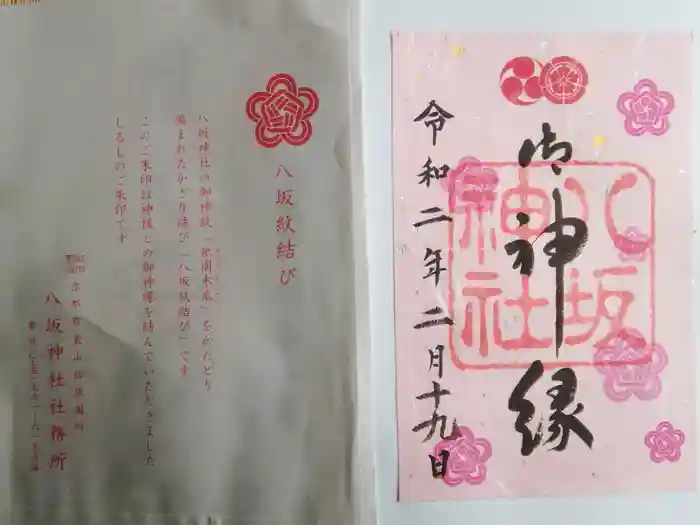 八坂紋結び
八坂神社の御神紋「祇園木瓜」をかたどり
編まれたかざり結び「八坂紋結び」です
このご朱印は神様との御神縁を結んでいただきました
しるしのご朱印です
八坂神社社務所
八坂
神社
御神縁
令和二年二月十九日